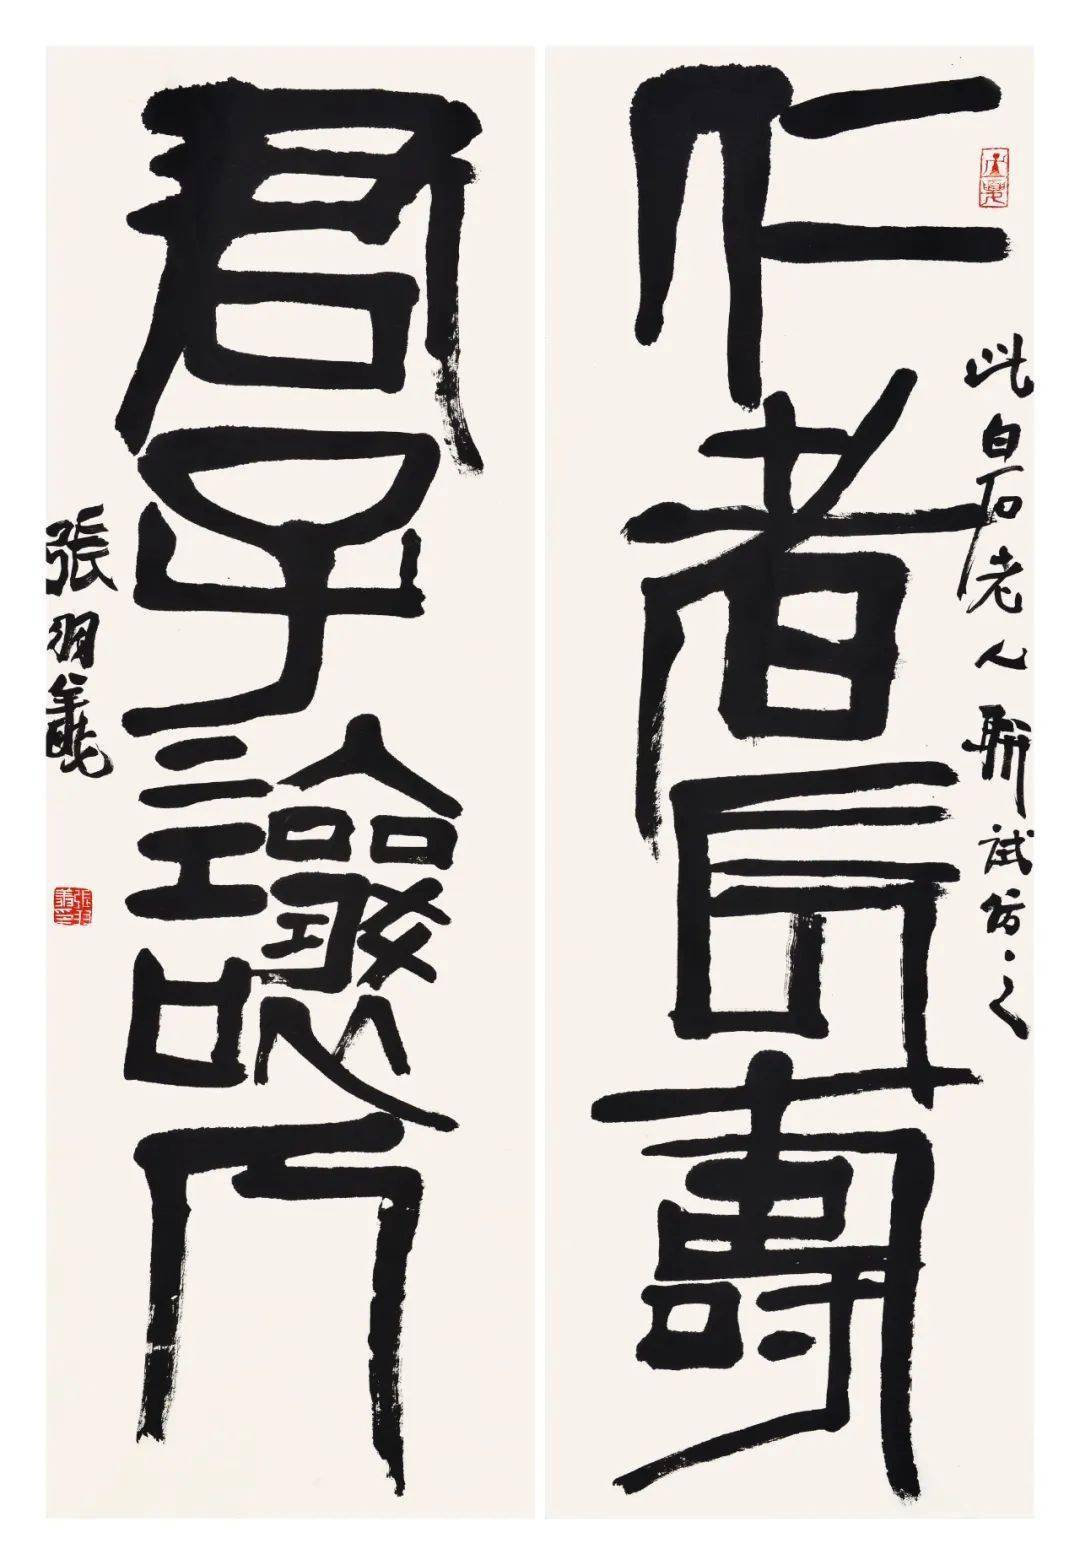 仁者長壽
此白石老人聯試仿之
君子讓人
張羽